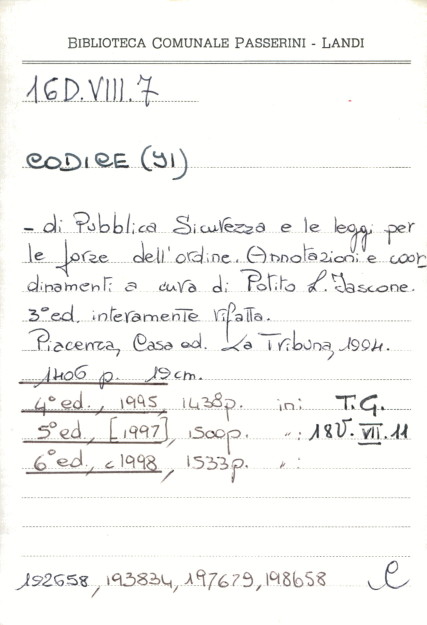 BIBLIOTECA COMUNALE PASSERINI - LANDI
16D.VIII.7
CODICE (YI)
- di Pubblica Sicurezza e le leggi per
le forze dell'ordine. Annotazioni e coor
dinamenti a cura di Potito L. Iascone.
3° ed. interamente rifatta.
Piacenza, Casa ed. La Tribuna, 1994.
1406 p. 19 cm.
4° ed., 1995, 1438 p. in: T.G.
5° ed., [1997], 1500 p. ": 18U.VII.11
6° ed., c1998, 1533 p. ":
192658, 193834, 197679, 198658 e